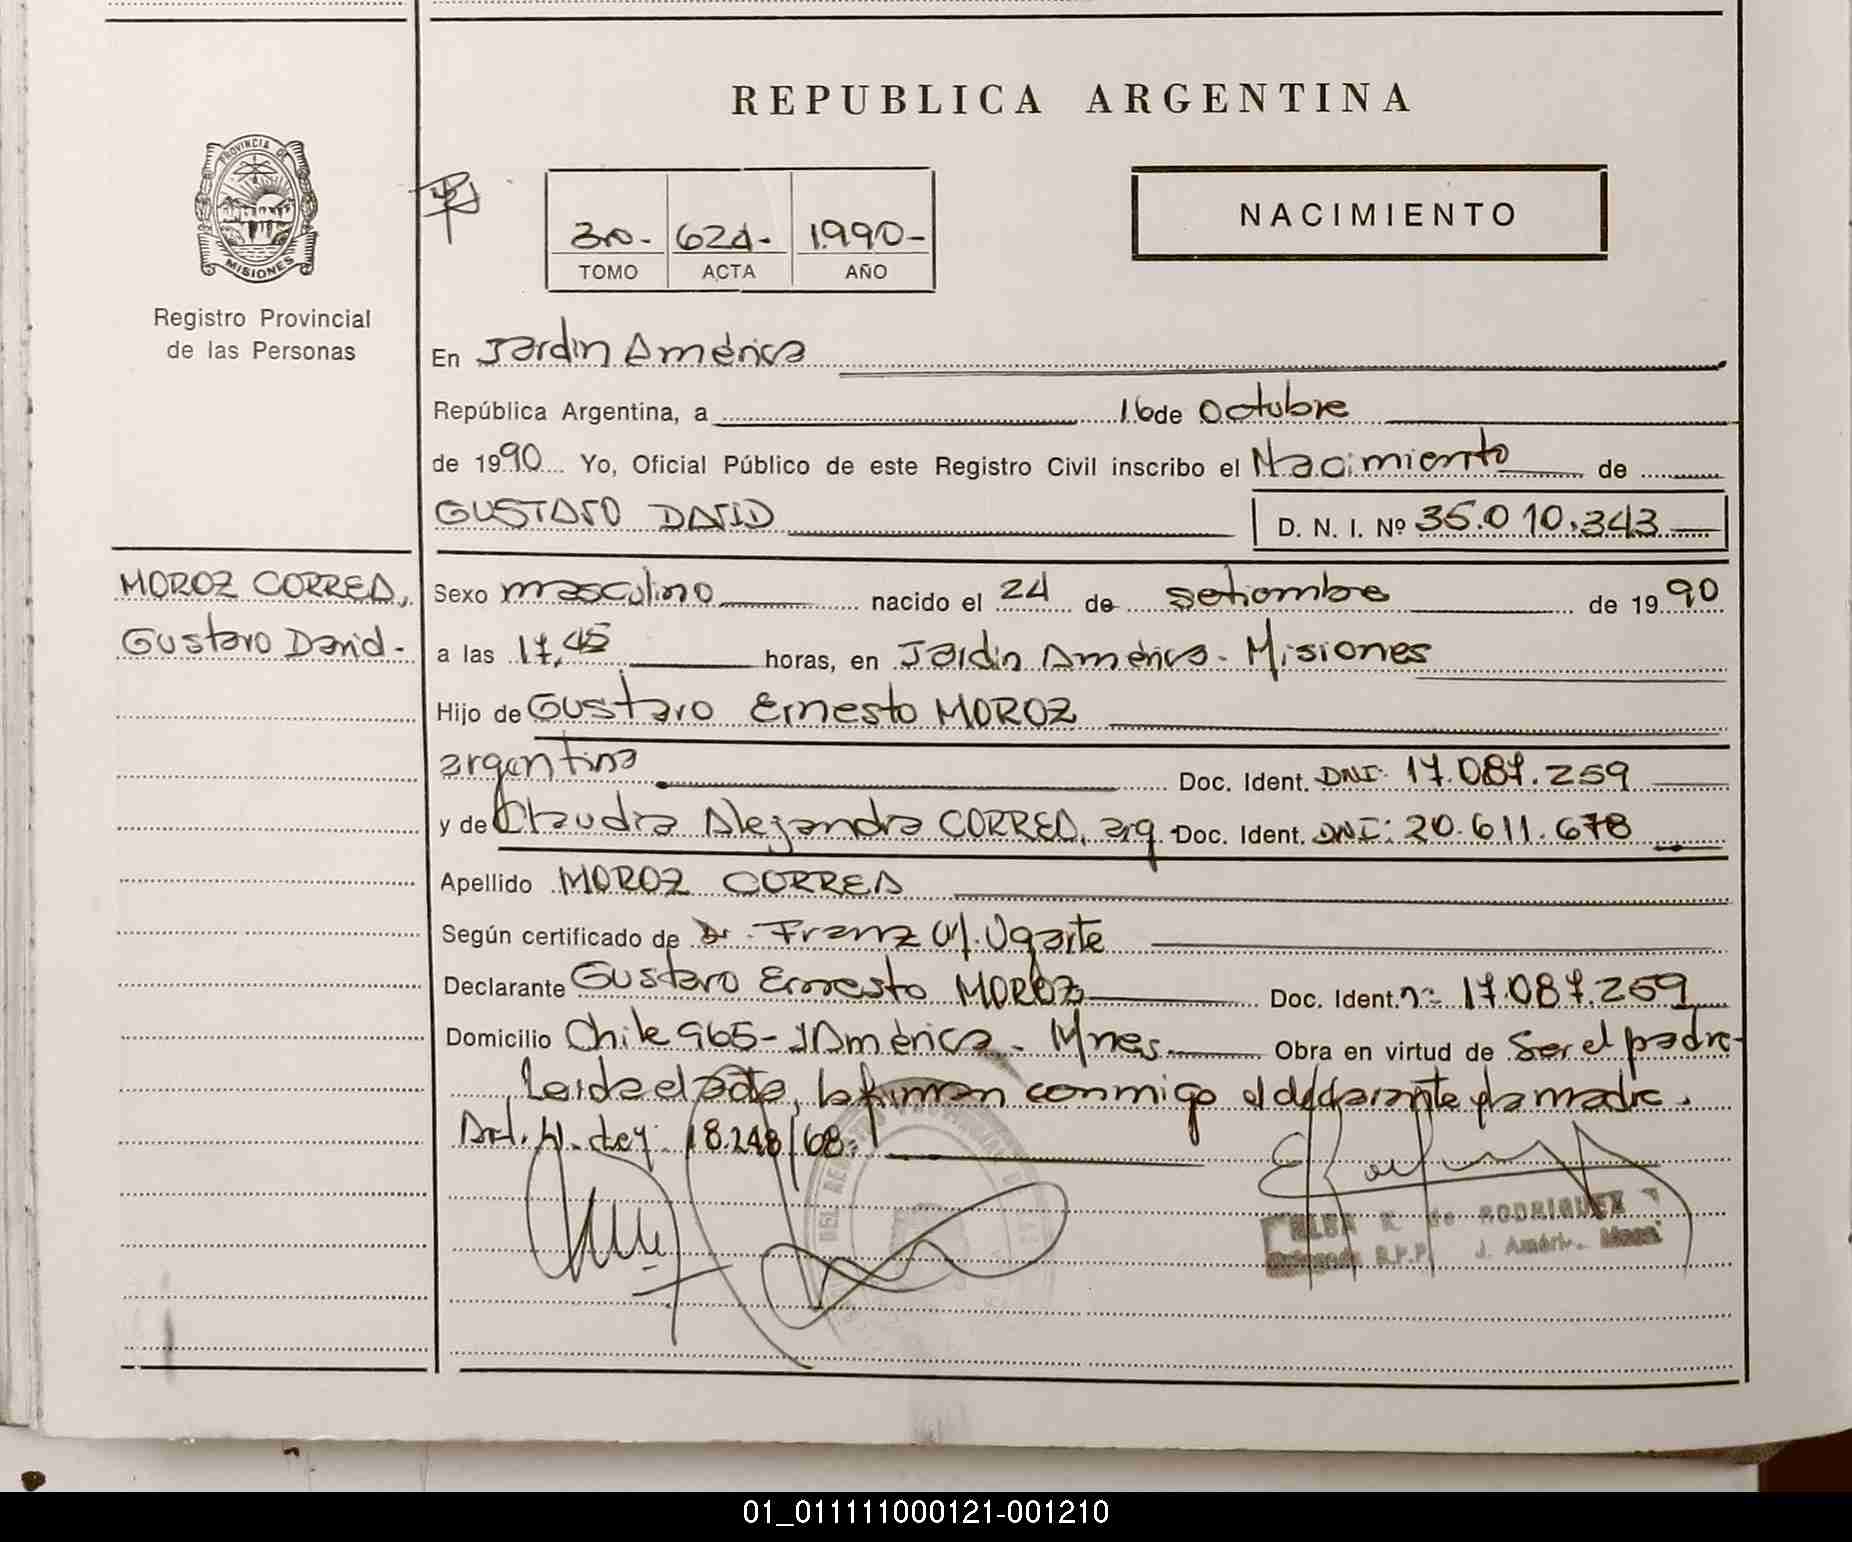 REPUBLICA ARGENTINA
PROVINCIA DE
MISIONES
Registro Provincial
de las Personas
NACIMIENTO
3ro.- 624.- 1.990-
TOMO ACTA AÑO
En Jardin América
República Argentina, a 16 de Octubre
de 1990 Yo, Oficial Público de este Registro Civil inscribo el Nacimiento de
GUSTAVO DAVID D. N. I. Nº 35.010.343
MOROZ CORREA,
Gustavo David-
Sexo masculino nacido el 24 de setiembre de 1990
a las 17,45 horas, en Jardin América. Misiones
Hijo de Gustavo Ernesto MOROZ
argentina Doc. Ident. DNI: 17.087.259
y de Claudia Alejandra CORREA, arg. Doc. Ident. DNI: 20.611.678
Apellido MOROZ CORREA
Según certificado de Dr. Franz W. Ugarte
Declarante Gustavo Ernesto MOROZ Doc. Ident. nº 17.087.259
Domicilio Chile 965- J América. Mnes. Obra en virtud de Ser el padre-
Leida el acta, la firman conmigo el declarante y la madre.
Art. ley 18.248/68.
ELSA R. de RODRIGUEZ
Delegada R.P.P. J. Améric. Mnes.
01_011111000121-001210